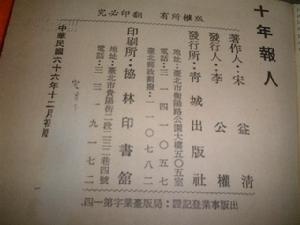 十年報人
版權所有　翻印必究
著作人：宋益清
發行人：李公權
發行所：青城出版社
地址：臺北市衡陽路公園大樓五〇五室
電話：三一四一〇五七
臺北郵政劃撥：一一〇七八二
印刷所：協林印書館
地址：臺北市貴陽街二段二三二巷四號
電話：三三一九一七二
出版事業登記證：局版臺業字第一四
中華民國六十六年十二月初版